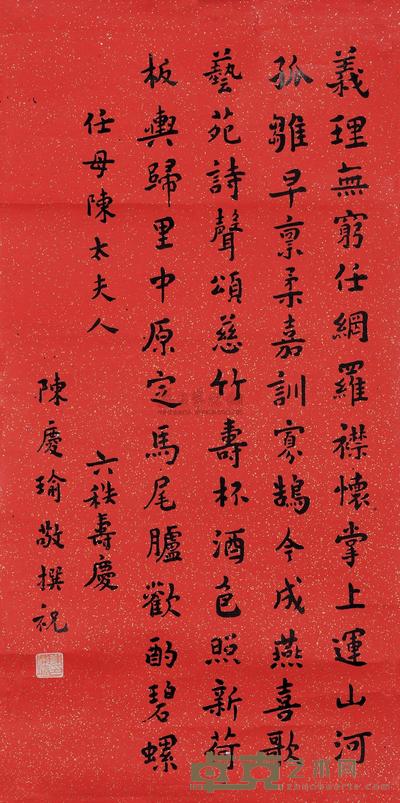 義理無窮任網羅襟懷掌上運山河
孤雛早稟柔嘉訓寡鵠今成燕喜歌
藝苑詩聲頌慈竹壽杯酒色照新荷
板輿歸里中原定馬尾臚歡酌碧螺
任母陳太夫人
六秩壽慶
陳慶瑜敬撰祝